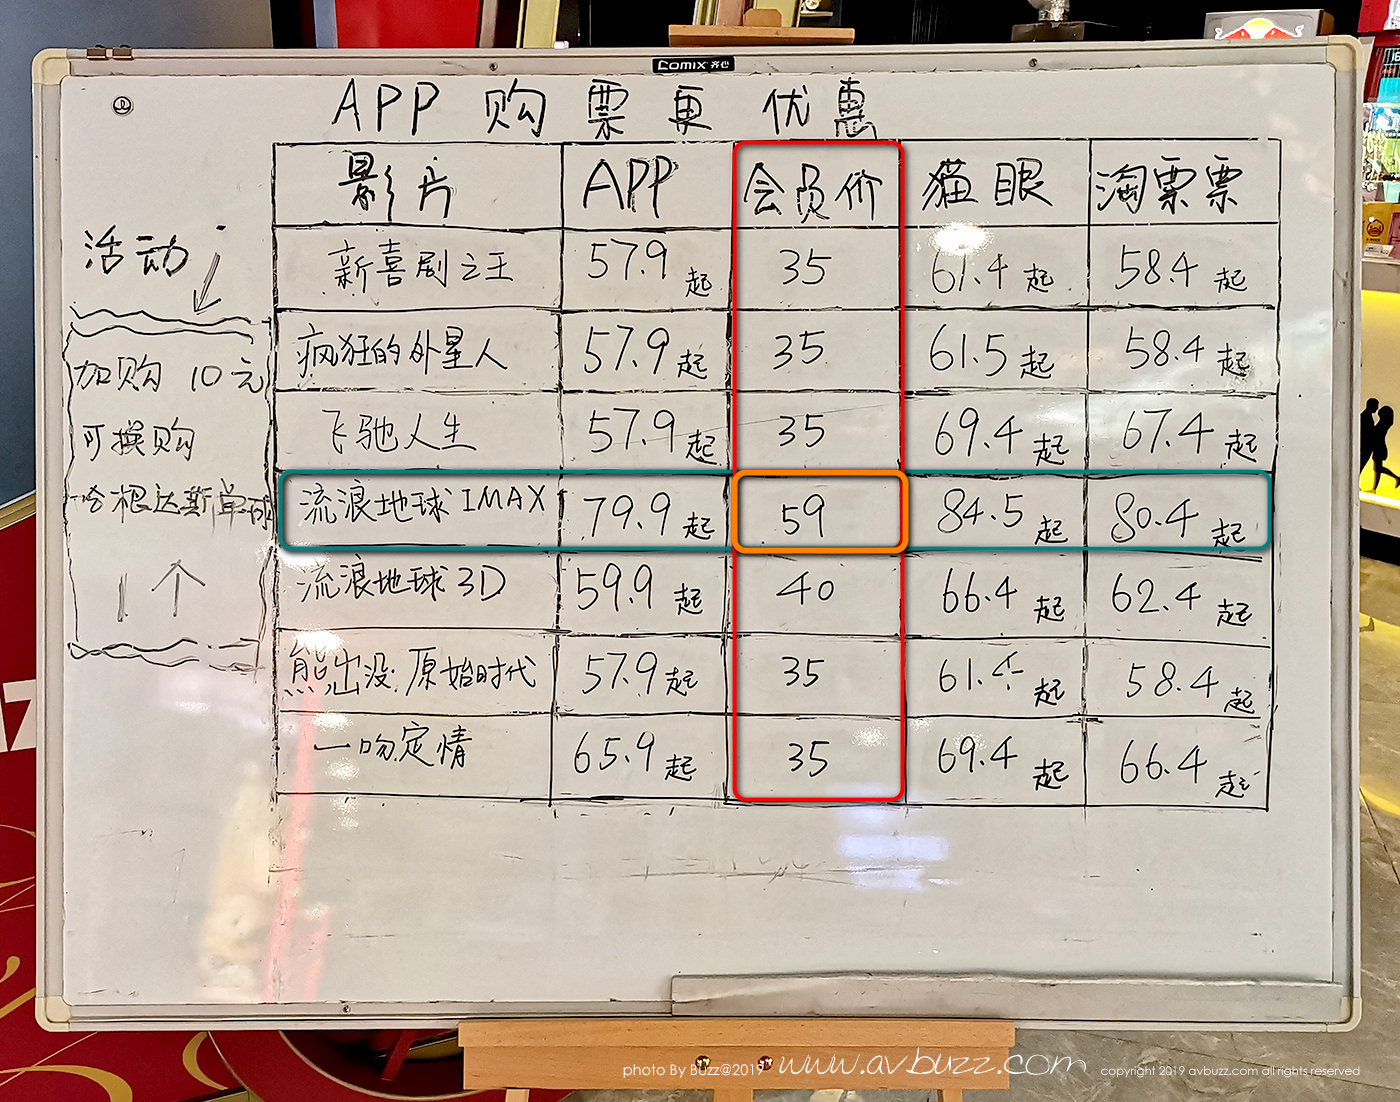 Comix 齐心
APP 购票更优惠
影片 APP 会员价 猫眼 淘票票
新喜剧之王 57.9起 35 61.4起 58.4起
疯狂的外星人 57.9起 35 61.5起 58.4起
飞驰人生 57.9起 35 69.4起 67.4起
流浪地球 IMAX 79.9起 59 84.5起 80.4起
流浪地球 3D 59.9起 40 66.4起 62.4起
熊出没:原始时代 57.9起 35 61.4起 58.4起
一吻定情 65.9起 35 69.4起 66.4起
活动:
加购 10元
可换购
哈根达斯单球
1个
photo By Buzz@2019 www.avbuzz.com copyright 2019 avbuzz.com all rights reserved